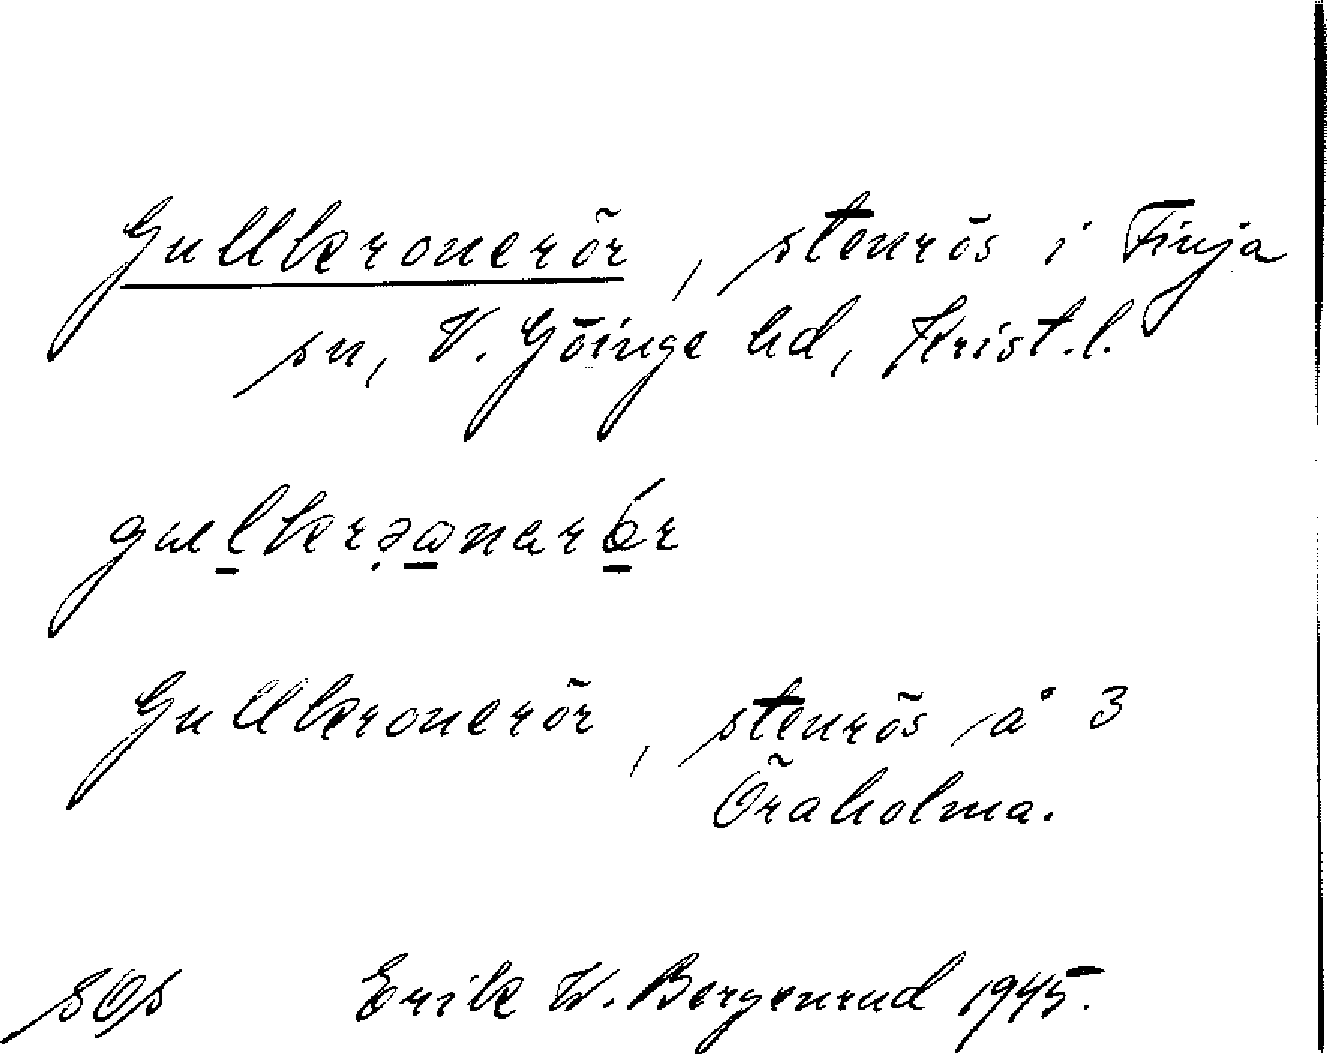 Gullkronerör, stenrös i Finja
sn, V. Göinge hd, Krist.l.
Gullkronerör, stenrös å 3
Öraholma.
Erik W. Bergenrud 1945.